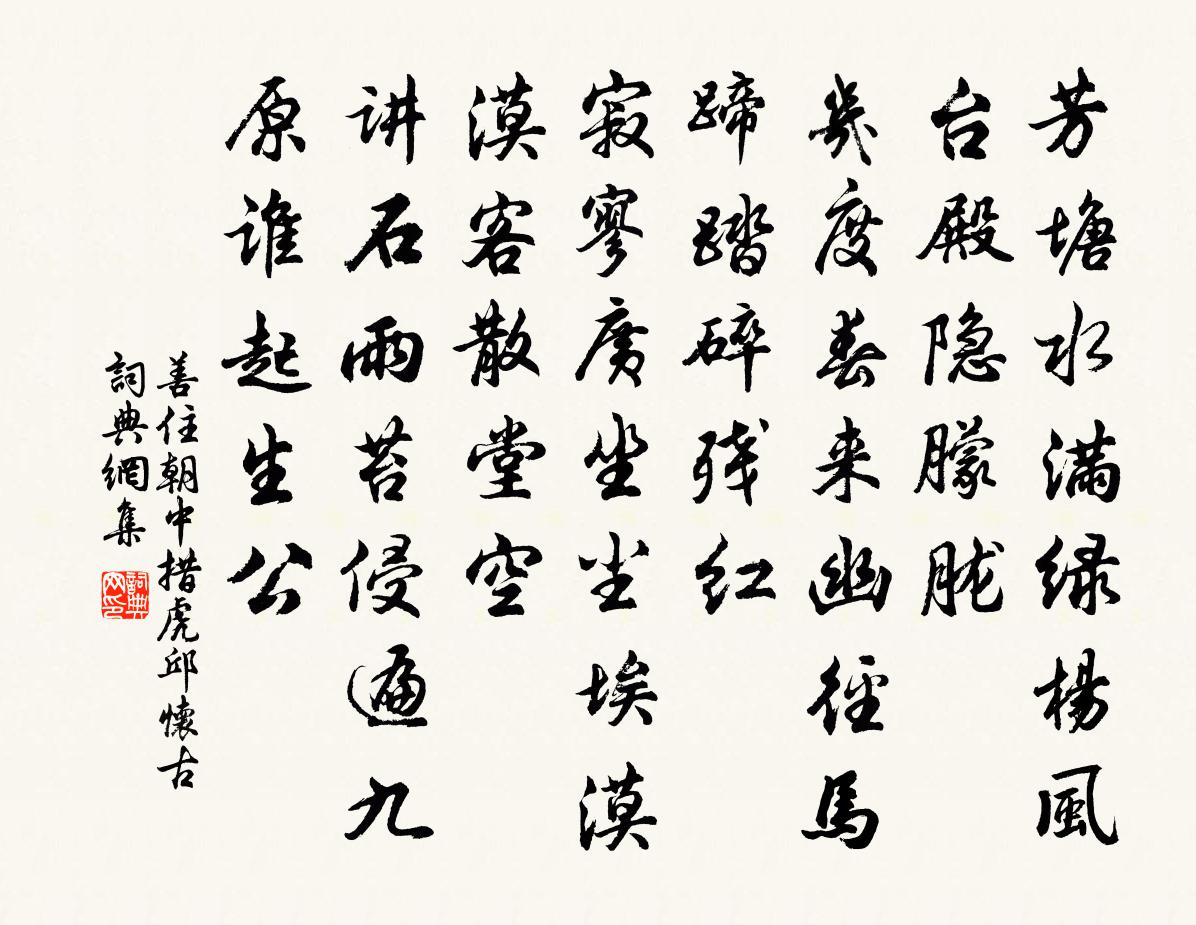 芳塘水满绿杨風
台殿隐朦胧
幾度春来幽径馬
蹄踏碎残红
寂寥廣坐尘埃漠
漠客散堂空
讲石雨苔侵遍九
原谁起生公
善住朝中措虎邱懷古
詞典網集
詞典网印